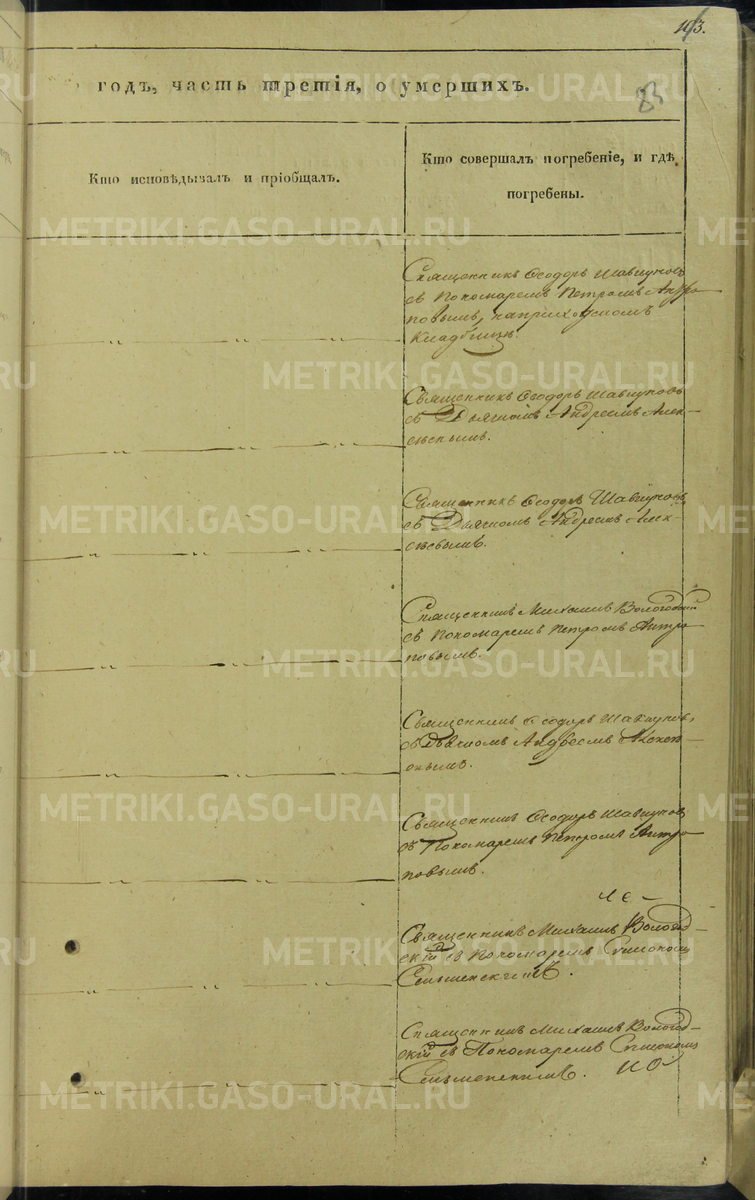 103.
83
годъ, часть третія, о умершихъ.
Кто исповѣдывалъ и пріобщалъ.
Кто совершалъ погребеніе, и гдѣ
погребены.
Священникъ Ѳеодоръ Шавкуновъ
съ Пономаремъ Петромъ Антро-
повымъ, на приходскомъ
Кладбищѣ.
Священникъ Ѳеодоръ Шавкуновъ
съ Дьячкомъ Андреемъ Алек-
сѣевымъ.
Священникъ Ѳеодоръ Шавкуновъ
съ Дьячкомъ Андреемъ Алек-
сѣевымъ.
Священникъ Михаилъ Вологодскій
съ Пономаремъ Петромъ Антро-
повымъ.
Священникъ Ѳеодоръ Шавкуновъ,
съ Дьячкомъ Андреемъ Алексѣ-
евымъ.
Священникъ Ѳеодоръ Шавкуновъ
съ Пономаремъ Петромъ Антро-
повымъ.
Священникъ Михаилъ Вологод-
скій съ Пономаремъ
Священникъ Михаилъ Вологод-
скій съ Пономаремъ
METRIKI.GASO-URAL.RU